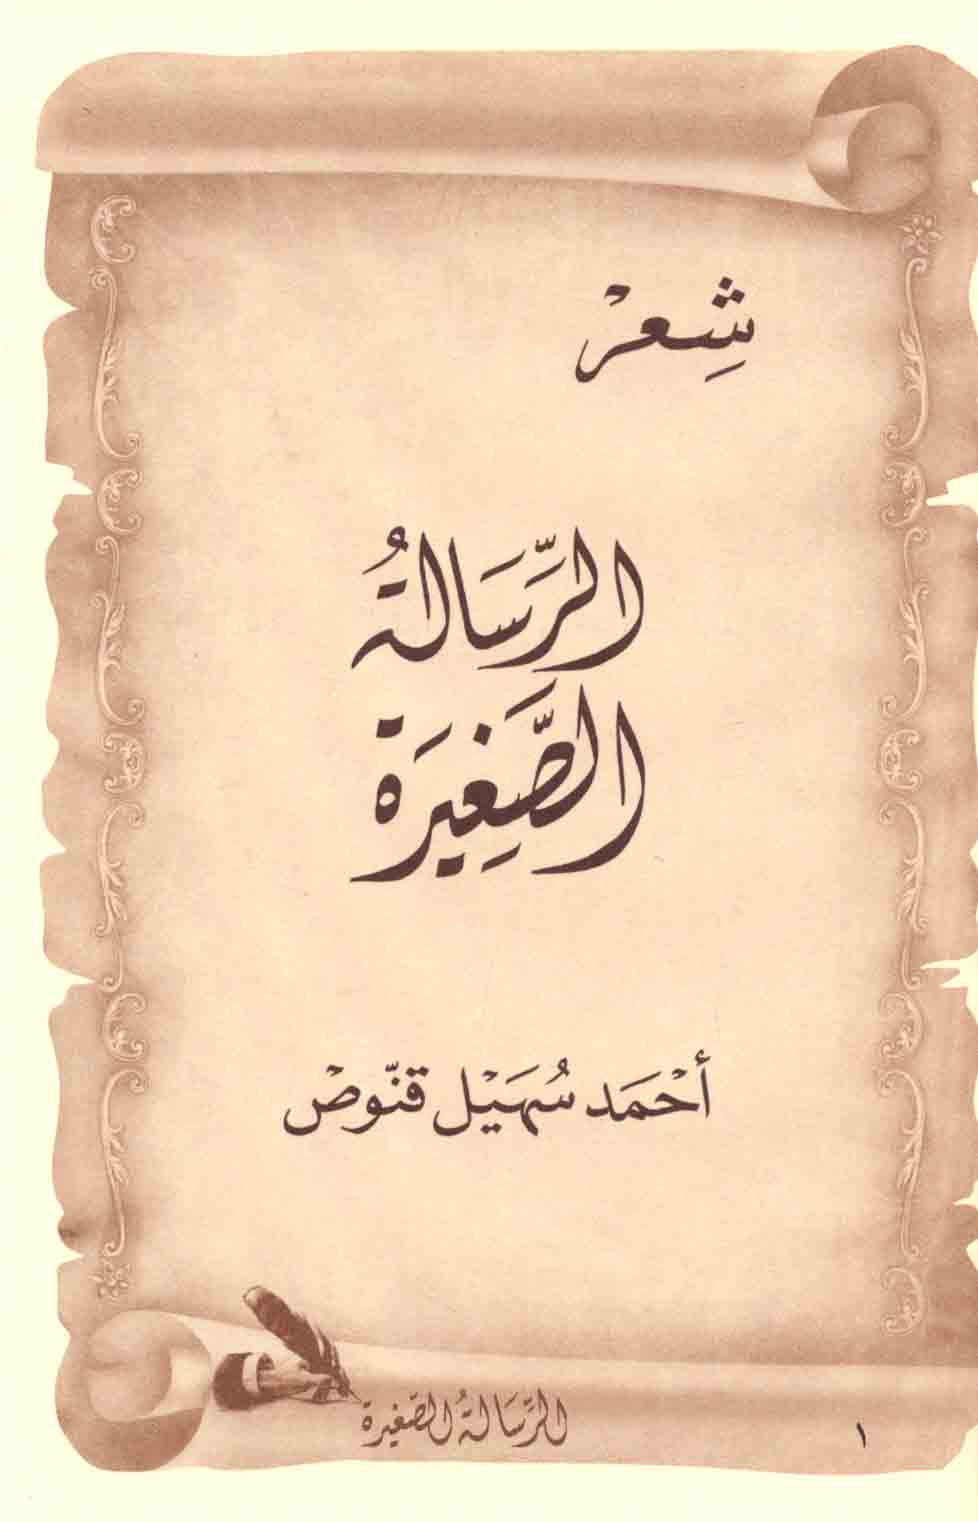 شِعرْ
الرِّسَالةُ
الصَّغِيرَة
أحْمَد سُهَيْل قنّوصْ
الرِّسَالةُ الصَّغيرة
١